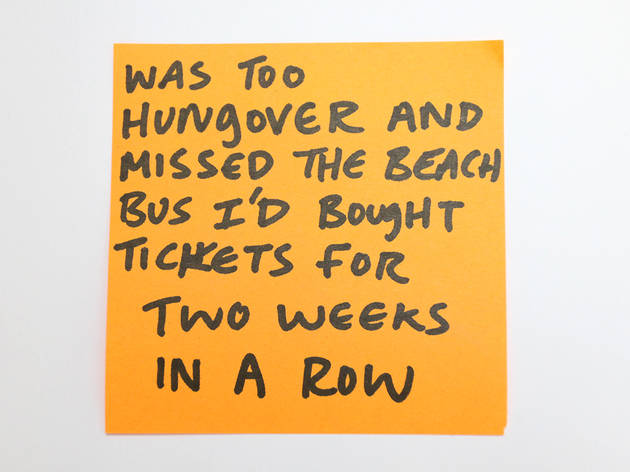 WAS TOO
HUNGOVER AND
MISSED THE BEACH
BUS I'D BOUGHT
TICKETS FOR
TWO WEEKS
IN A ROW